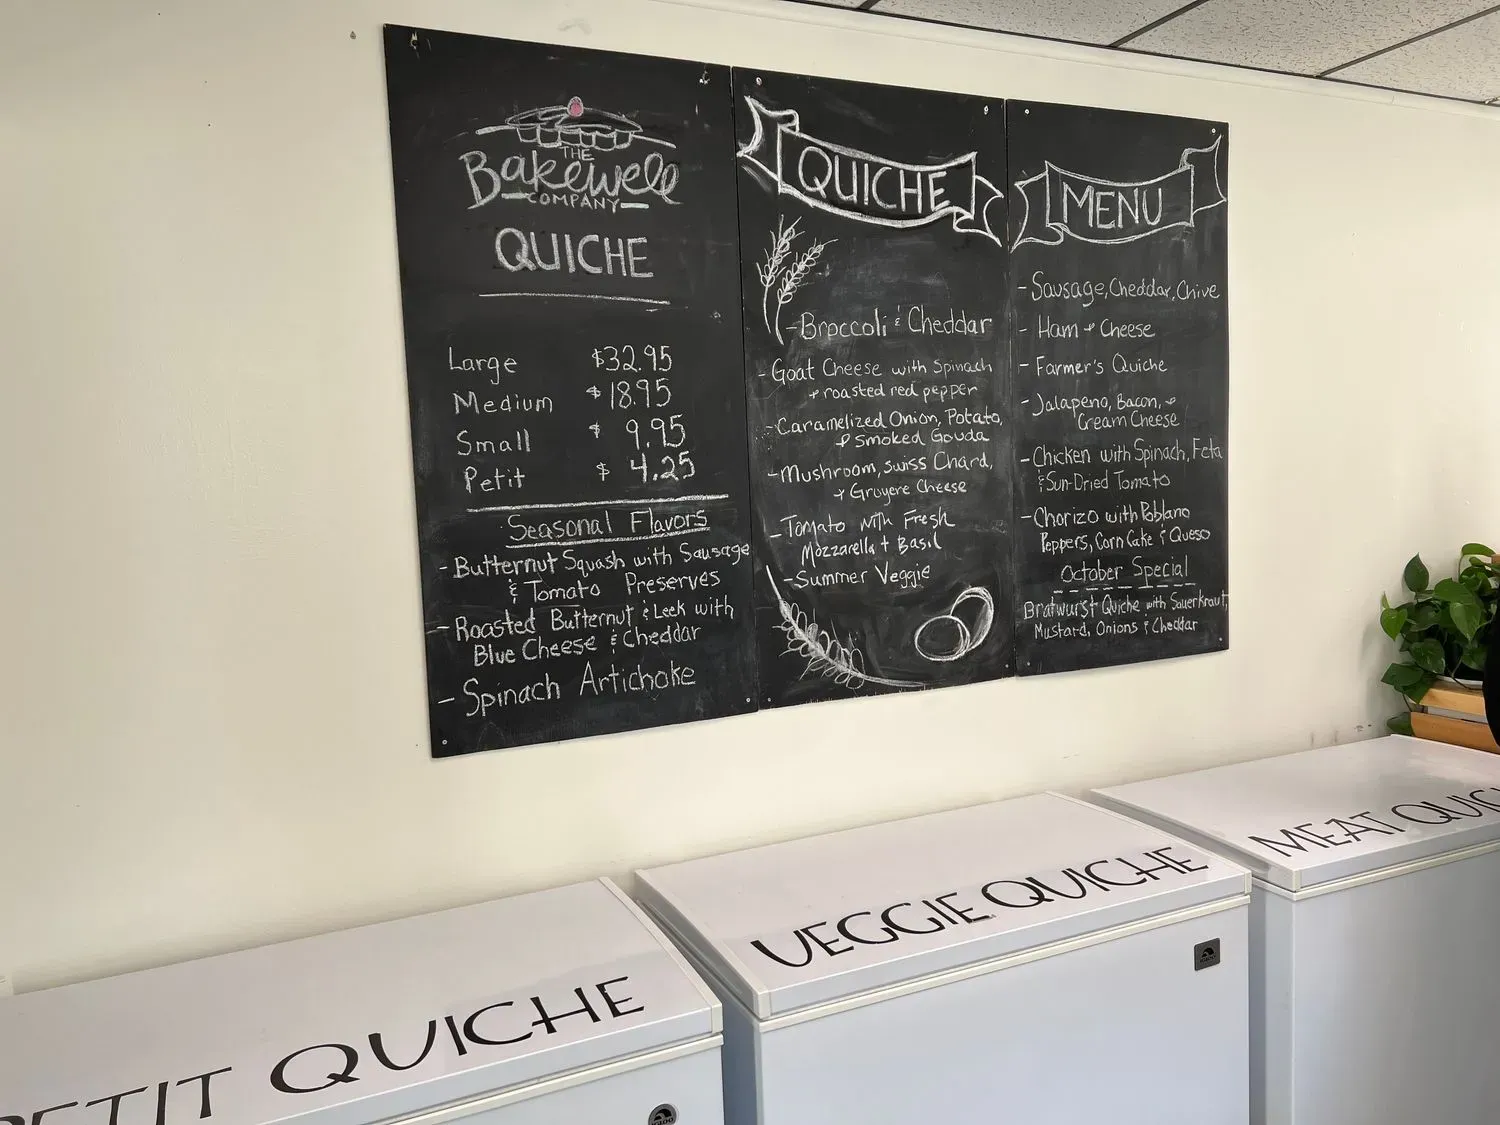 THE
Bakewell
COMPANY
QUICHE
Large $32.95
Medium $18.95
Small $ 9.95
Petit $ 4.25
Seasonal Flavors
- Butternut Squash with Sausage
& Tomato Preserves
- Roasted Butternut & Leek with
Blue Cheese & Cheddar
- Spinach Artichoke
QUICHE
- Broccoli & Cheddar
- Goat Cheese with Spinach
+ roasted red pepper
- Caramelized Onion, Potato,
& Smoked Gouda
- Mushroom, Swiss Chard,
+ Gruyere Cheese
- Tomato with Fresh
Mozzarella + Basil
- Summer Veggie
MENU
- Sausage, Cheddar, Chive
- Ham + Cheese
- Farmer's Quiche
- Jalapeno, Bacon, +
Cream Cheese
- Chicken with Spinach, Feta
& Sun-Dried Tomato
- Chorizo with Poblano
Peppers, Corn Cake & Queso
October Special
Bratwurst Quiche with Sauerkraut,
Mustard, Onions & Cheddar
PETIT QUICHE
VEGGIE QUICHE
MEAT QUIC